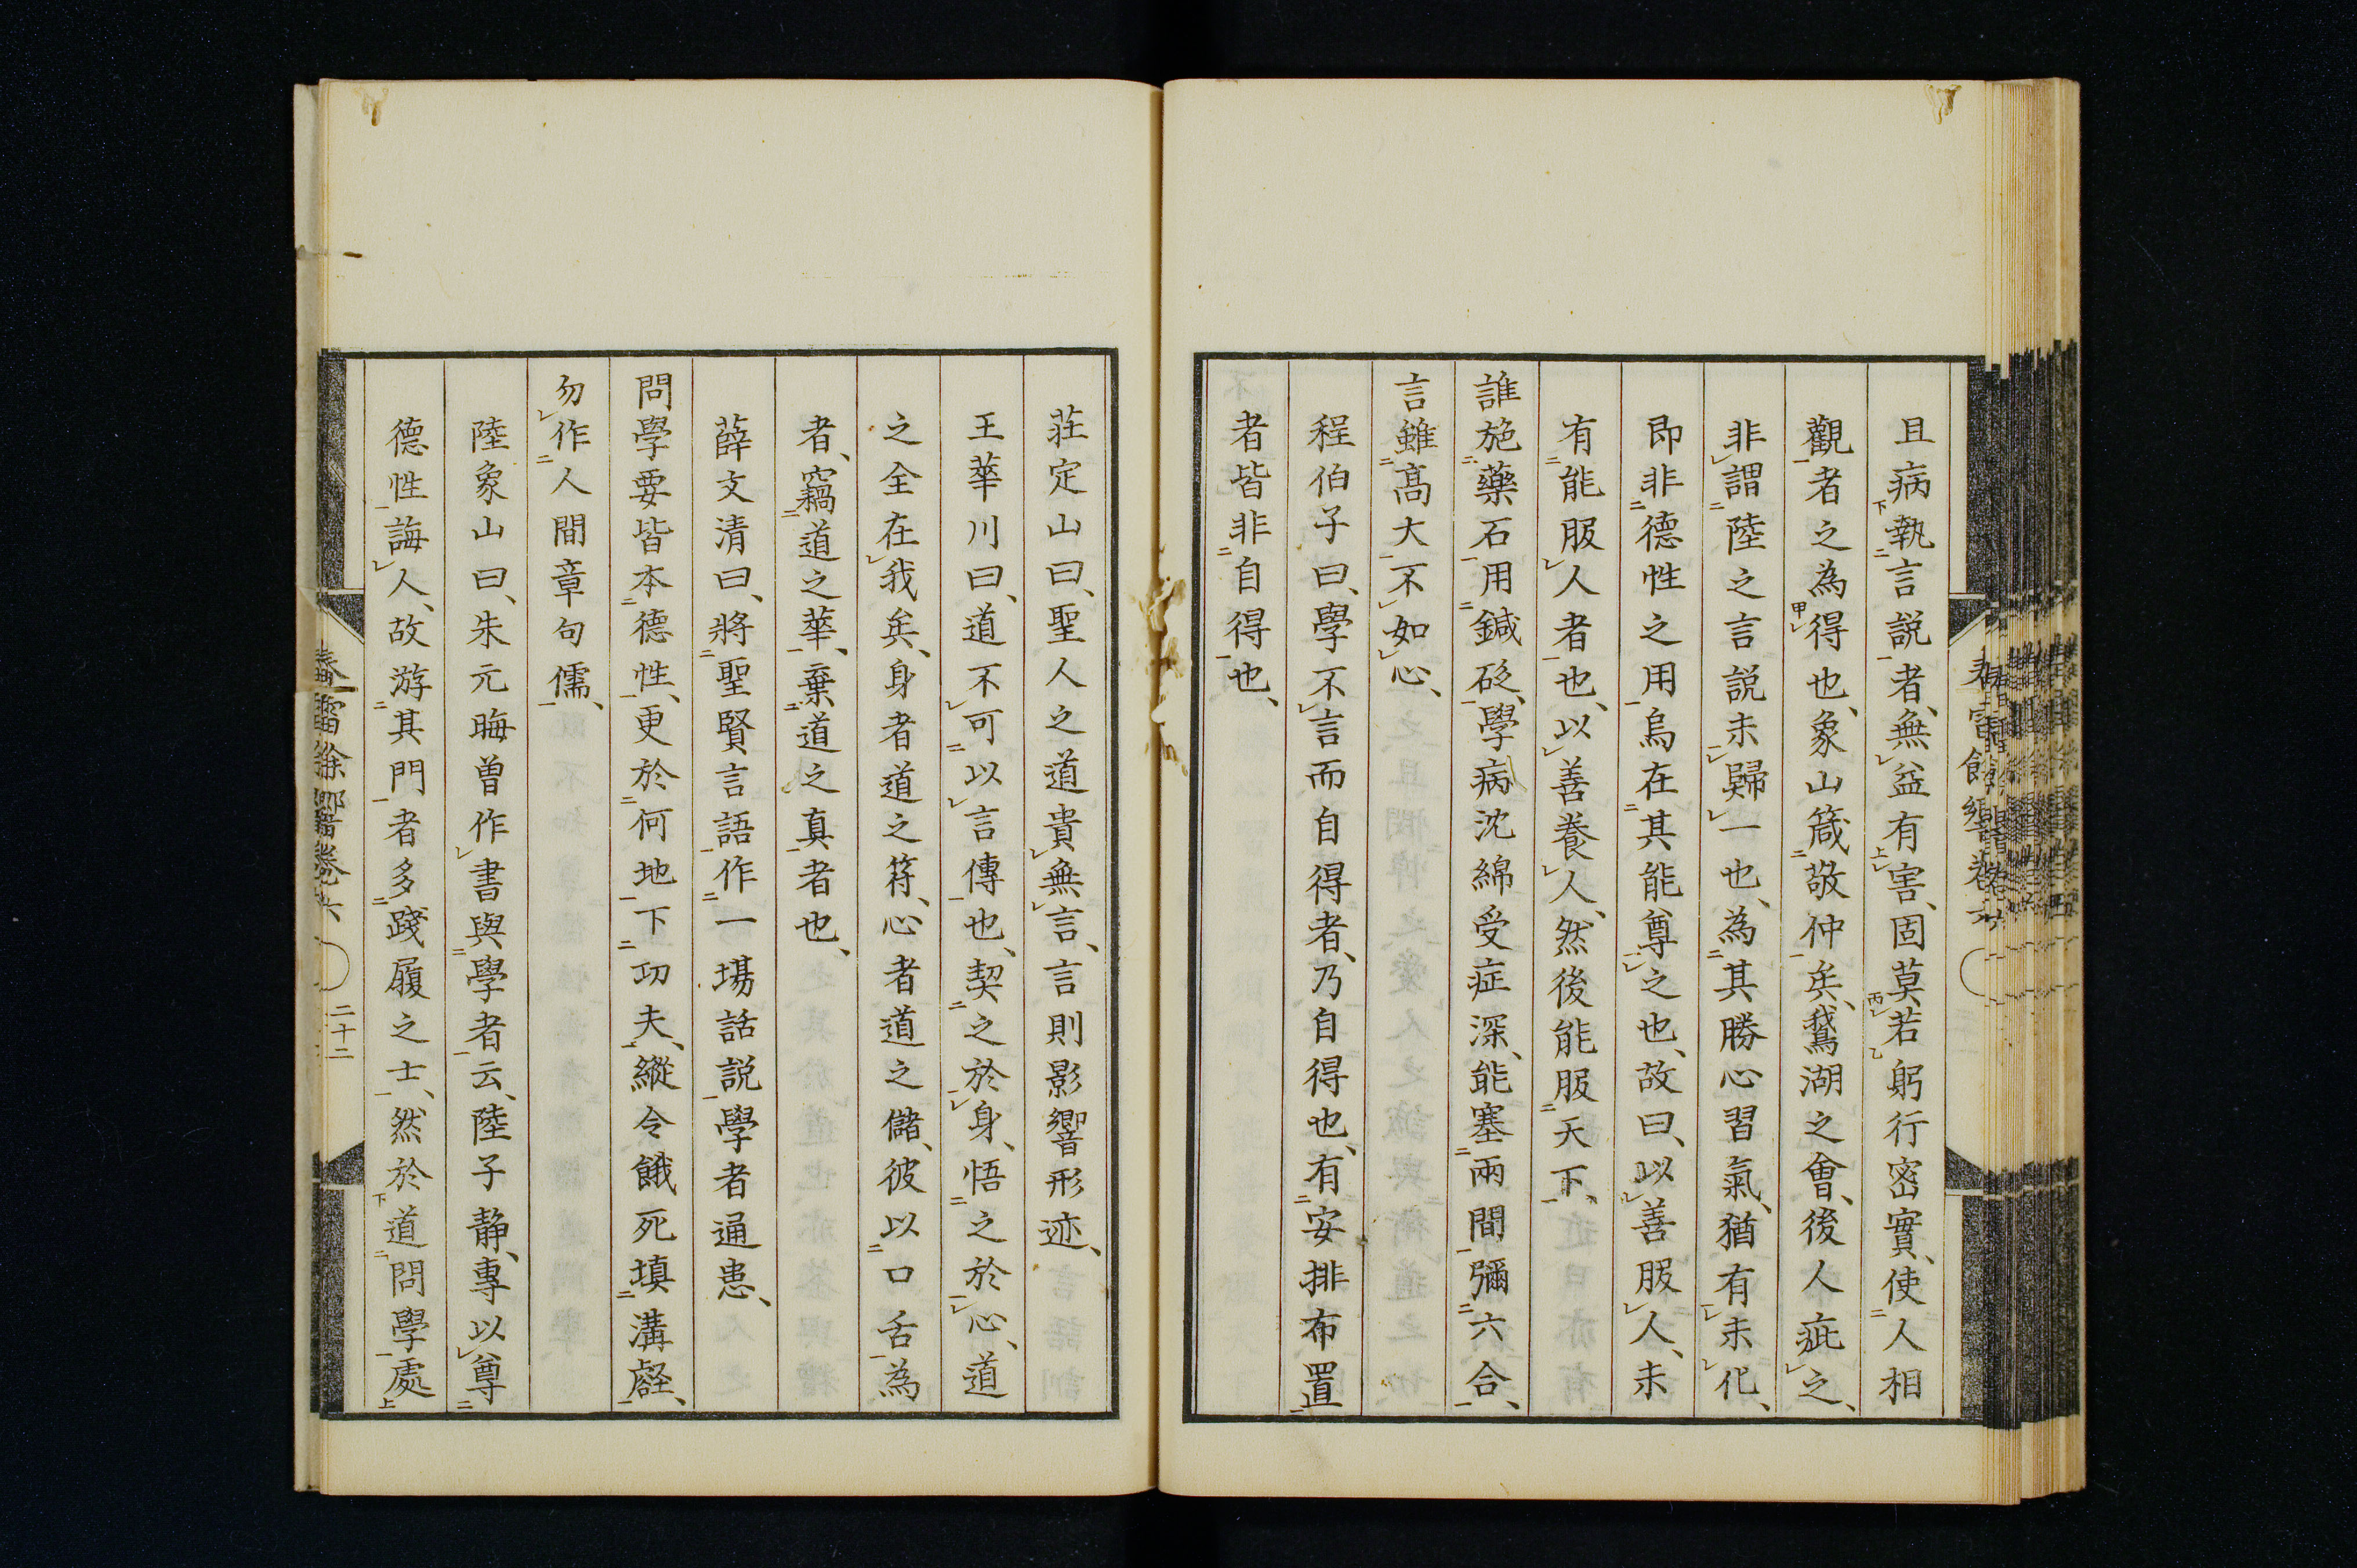 且病執言説者、無益有害、固莫若躬行密實、使人相
觀者之為得也、象山箴敬仲矣、鵞湖之會、後人疵之、
非謂陸之言説未歸一也、為其勝心習氣、猶有未化、
即非德性之用、烏在其能尊之也、故曰、以善服人、未
有能服人者也、以善養人、然後能服天下、
誰施藥石用鍼砭、學病沈綿受症深、能塞兩間彌六合、
言雖高大不如心、
程伯子曰、學不言而自得者、乃自得也、有安排布置
者皆非自得也、
莊定山曰、聖人之道貴無言、言則影響形迹、
王華川曰、道不可以言傳也、契之於身、悟之於心、道
之全在我矣、身者道之符、心者道之儲、彼以口舌為
者、竊道之華、棄道之真者也、
薛文清曰、將聖賢言語作一場話説、學者通患、
問學要皆本德性、更於何地下功夫、縱令餓死填溝壑、
勿作人間章句儒、
陸象山曰、朱元晦曽作書與學者云、陸子靜、專以尊
德性誨人、故游其門者多踐履之士、然於道問學處
二十二